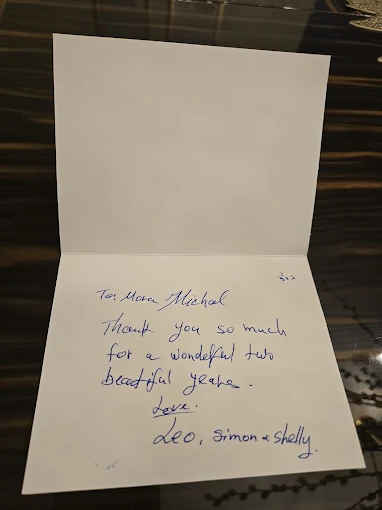 בס"ד
To: Mora Michal
Thank you so much
for a wondelful two
beautiful years.
Love.
Leo, Simon & Shelly.